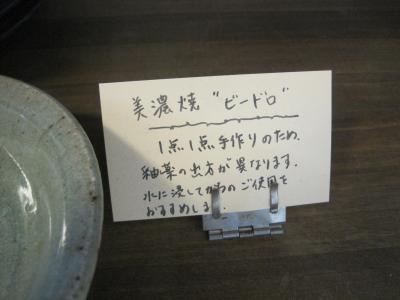 美濃焼 "ビードロ"
1点1点手作りのため、
釉薬の出方が異なります.
水に浸してからの ご使用を
おすすめしま